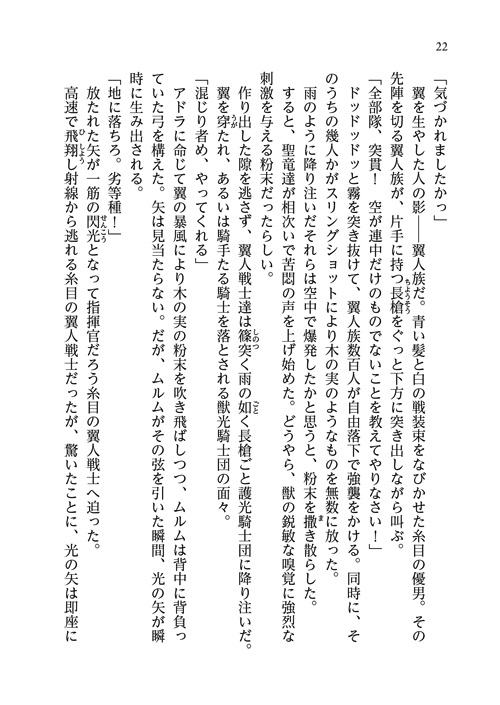 22
「気づかれましたかっ」
　翼を生やした人の影――翼人族だ。青い髪と白の戦装束をなびかせた糸目の優男。その
先陣を切る翼人族が、片手に持つ長槍をぐっと下方に突き出しながら叫ぶ。
「全部隊、突貫！　空が連中だけのものでないことを教えてやりなさい！」
　ドッドッドッと霧を突き抜けて、翼人族数百人が自由落下で強襲をかける。同時に、そ
のうちの幾人かがスリングショットにより木の実のようなものを無数に放った。
　雨のように降り注いだそれらは空中で爆発したかと思うと、粉末を撒き散らした。
　すると、聖竜達が相次いで苦悶の声を上げ始めた。どうやら、獣の鋭敏な嗅覚に強烈な
刺激を与える粉末だったらしい。
　作り出した隙を逃さず、翼人戦士達は篠突く雨の如く長槍ごと護光騎士団に降り注いだ。
　翼を穿たれ、あるいは騎手たる騎士を落とされる獣光騎士団の面々。
「混じり者め、やってくれる」
　アドラに命じて翼の暴風により木の実の粉末を吹き飛ばしつつ、ムルムは背中に背負っ
ていた弓を構えた。矢は見当たらない。だが、ムルムがその弦を引いた瞬間、光の矢が瞬
時に生み出される。
「地に落ちろ。劣等種！」
　放たれた矢が一筋の閃光となって指揮官だろう糸目の翼人戦士へ迫った。
　高速で飛翔し射線から逃れる糸目の翼人戦士だったが、驚いたことに、光の矢は即座に